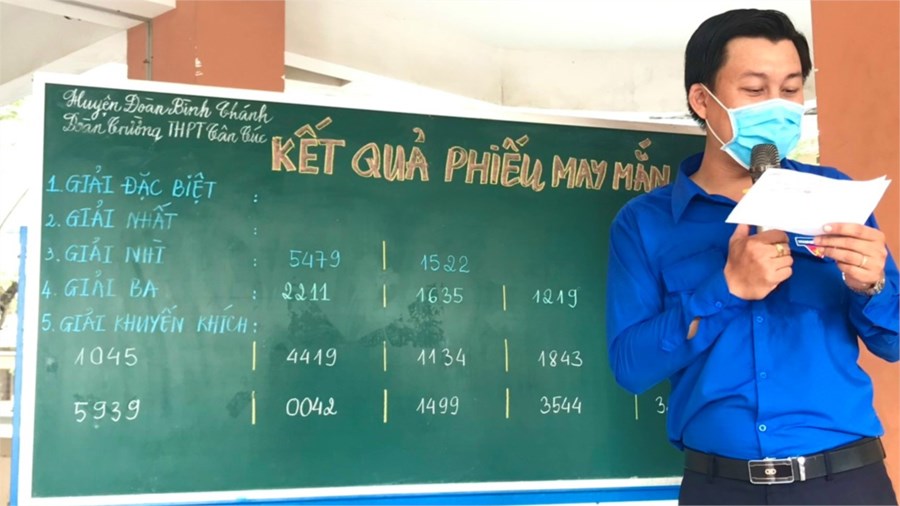 Huyện Đoàn Bình Chánh
Đoàn Trường THPT Tân Túc
KẾT QUẢ PHIẾU MAY MẮN
1. GIẢI ĐẶC BIỆT :
2. GIẢI NHẤT :
3. GIẢI NHÌ : 5479 | 1522
4. GIẢI BA : 2211 | 1635 | 1219
5. GIẢI KHUYẾN KHÍCH :
1045 | 4419 | 1134 | 1843
5939 | 0042 | 1499 | 3544 | 3